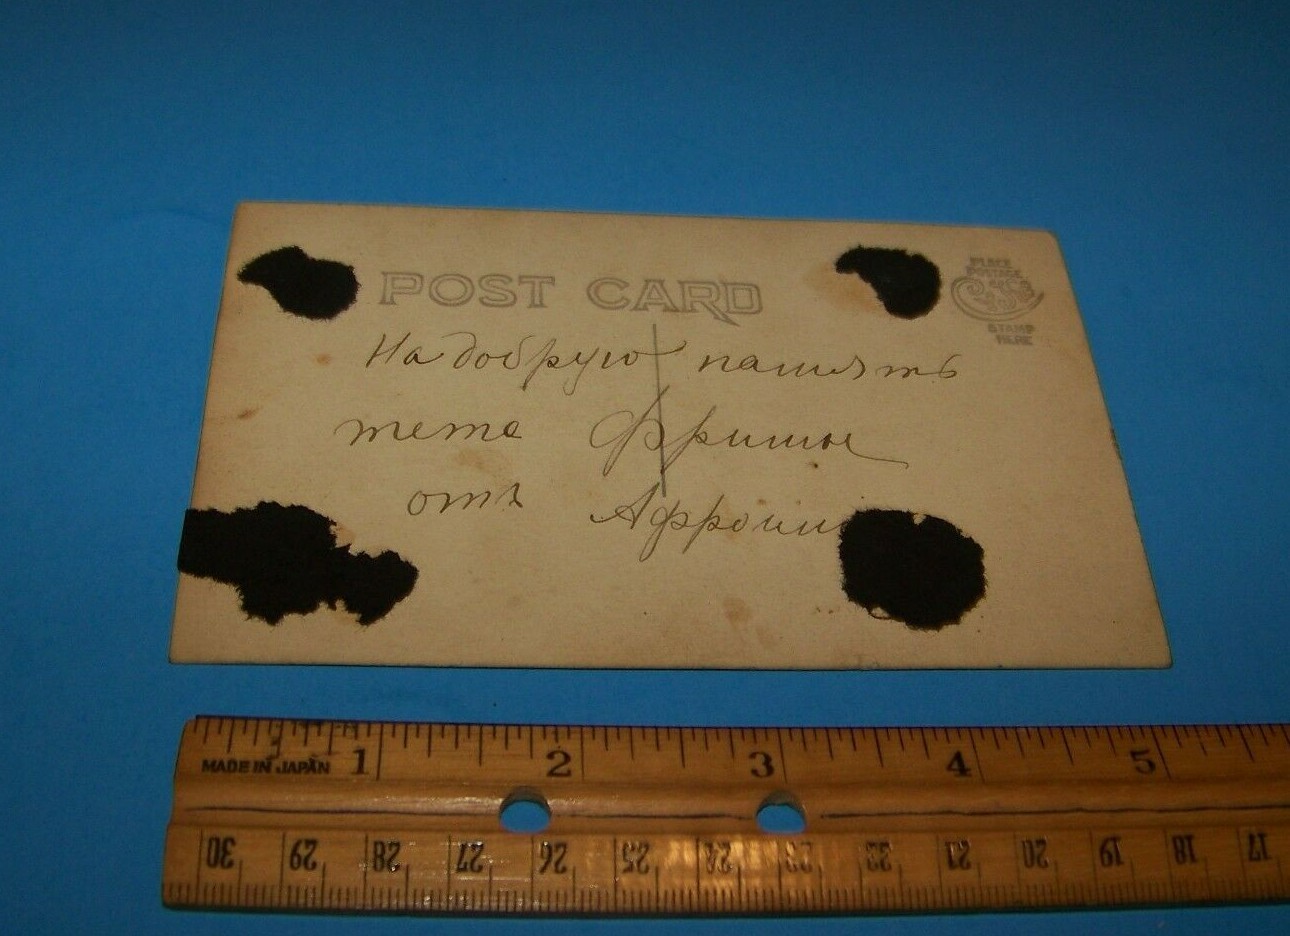 POST CARD
PLACE
POSTAGE
STAMP
HERE
На добрую память
тета
отъ
MADE IN JAPAN 1 2 3 4 5
30 29 28 27 26 25 24 23 22 21 20 19 18 17